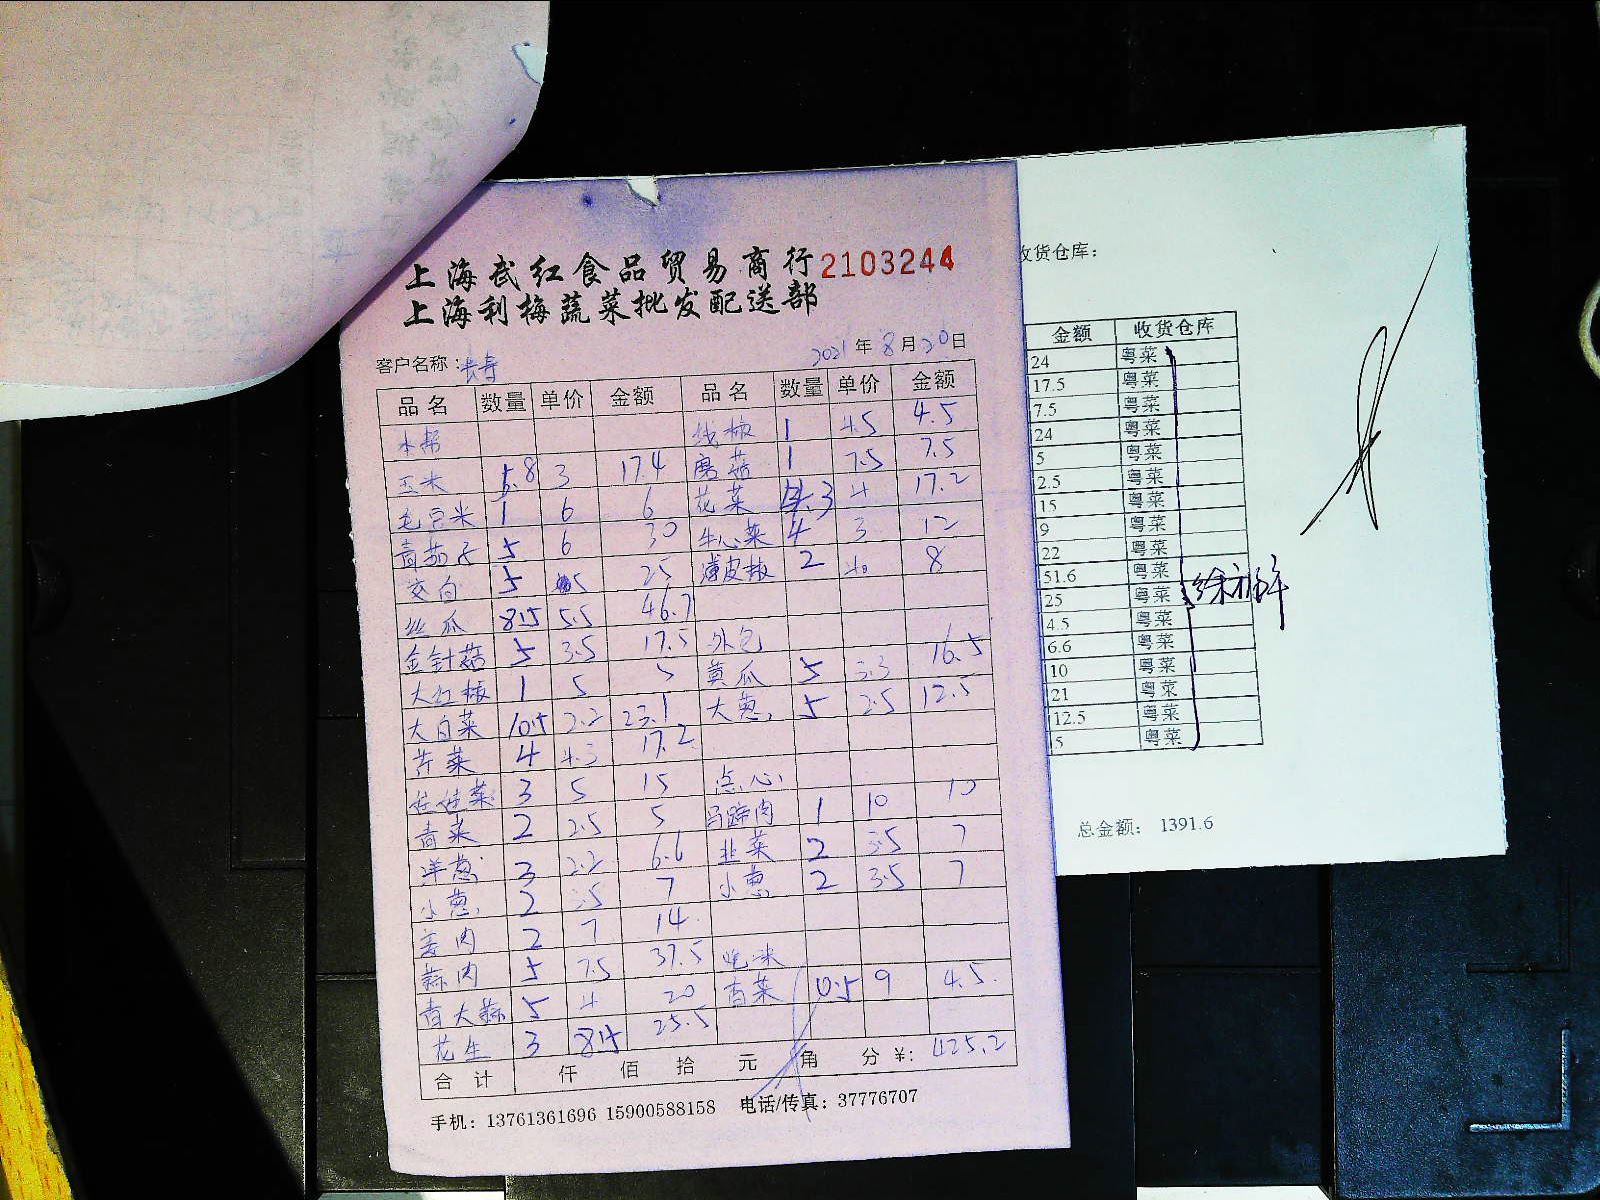 上海武红食品贸易商行 2103244
上海利梅蔬菜批发配送部
客户名称: 长寿 2021年8月20日
品名 数量 单价 金额 品名 数量 单价 金额
本帮 线椒 1 4.5 4.5
玉米 5.8 3 17.4 磨菇 1 7.5 7.5
毛豆米 1 6 6 花菜 4.3 4 17.2
青茄子 5 6 30 牛心菜 4 3 12
茭白 5 5 25 薄皮椒 2 4 8
丝瓜 8.5 5.5 46.7
金针菇 5 3.5 17.5 外包
大红椒 1 5 5 黄瓜 5 3.3 16.5
大白菜 10.5 2.2 23.1 大葱 5 2.5 12.5
芹菜 4 4.3 17.2
娃娃菜 3 5 15 点心
青菜 2 2.5 5 马蹄肉 1 10 10
洋葱 3 2.2 6.6 韭菜 2 3.5 7
小葱 2 3.5 7 小葱 2 3.5 7
姜肉 2 7 14
蒜肉 5 7.5 37.5
青大蒜 5 4 20 香菜 0.5 9 4.5
花生 3 8.5 25.5
合计 仟 佰 拾 元 角 分 ¥: 425.2
手机: 13761361696 15900588158 电话/传真: 37776707
收货仓库:
金额 收货仓库
24 粤菜
17.5 粤菜
7.5 粤菜
24 粤菜
5 粤菜
2.5 粤菜
15 粤菜
9 粤菜
22 粤菜
51.6 粤菜
25 粤菜
4.5 粤菜
6.6 粤菜
10 粤菜
21 粤菜
12.5 粤菜
5 粤菜
总金额: 1391.6